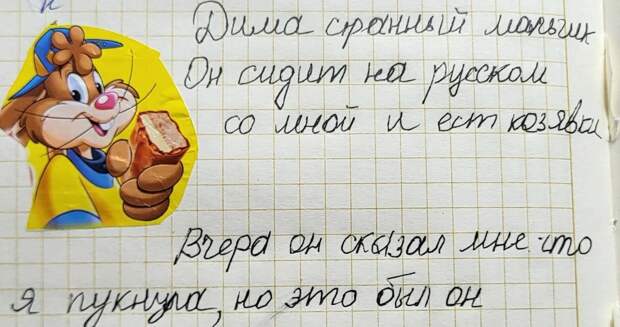 Дима сранный мальчик
Он сидит на русском
со мной и ест козявки
Вчера он скызал мне что
я пукнула, но это был он